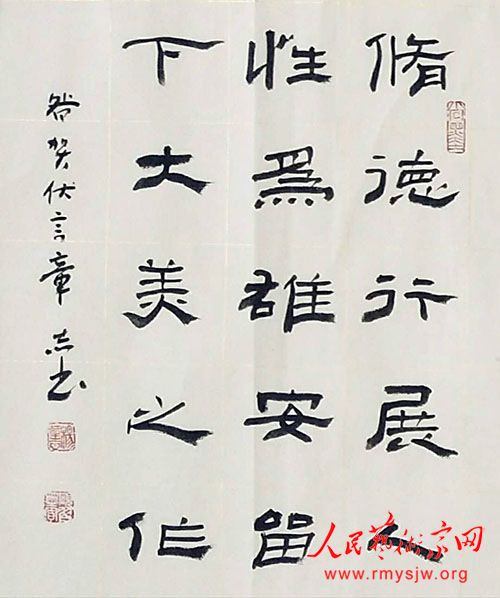 脩德行展人
性爲雄安留
下大美之作
昝贺伏言章志书
人民藝術家网
www.rmysjw.org